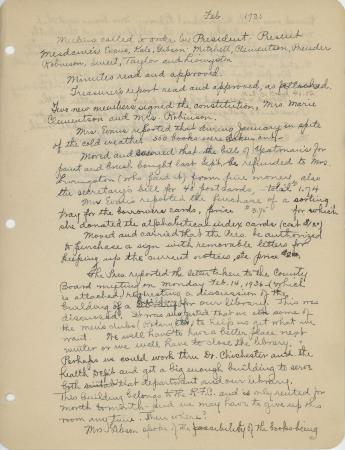 Feb 1936
Meeting called to order by President. Present
Mesdames Evans, Kale, Gibson, Mitchell, Clewertson,
Robinson, Sweet, Taylor and Livingston
Minutes read and approved.
Treasurer's report read and approved, as attached.
Two new members signed the constitution, Mrs Marie
Clewertson and Mrs. Robinson.
Mrs. Evans reported that during January in spite
of the cold weather 300 books were taken out.
Moved and seconded that the bill of for
paint and brush bought last Sept. be refunded to Mrs.
Livingston (who paid it) from fine money, also
the secretary's bill for 40 postcards, total 1.74
Mrs Evans reported the purchase of a sorting
tray for the borrowers cards, price for which
she donated the alphabetical index cards
Moved and carried that the Pres. be authorized
to purchase a sign with removable letters for
keeping up the current notices, etc. price
The Pres reported the letter taken to the County
Board meeting on Monday Feb. 14, 1936 (which
is attached) requesting a discussion of the
building of a building for our library. This was
discussed. It was suggested that we ask some of
the men's clubs, to help us get what we
want. We will have to have a better place next
winter or we will have to close the library.
Perhaps we could work thru Dr. Chichester and the
Health Dept and get a big enough building to serve
both that department and our library.
This building belongs to the R.F.C. and is only rented for
month to month and we may have to give up this
room any time. Then where?
Mrs. Gibson spoke of the possibility of the books being